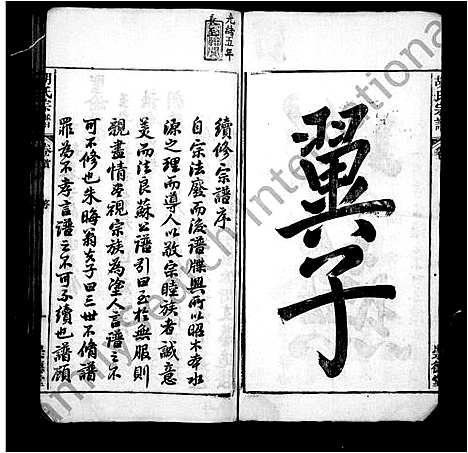 翼子
光緒五年
續修宗譜序
自宗法廢而後譜牒興所以昭木本水
源之理而導人以敬宗睦族者誠意
美而法良蘇公譜引曰至於無服則
親盡情盡視宗族為塗人言譜之不
可不修也朱晦翁夫子曰三世不脩譜
罪為不孝言譜之不可不續也譜顧
胡氏宗譜
卷首
序